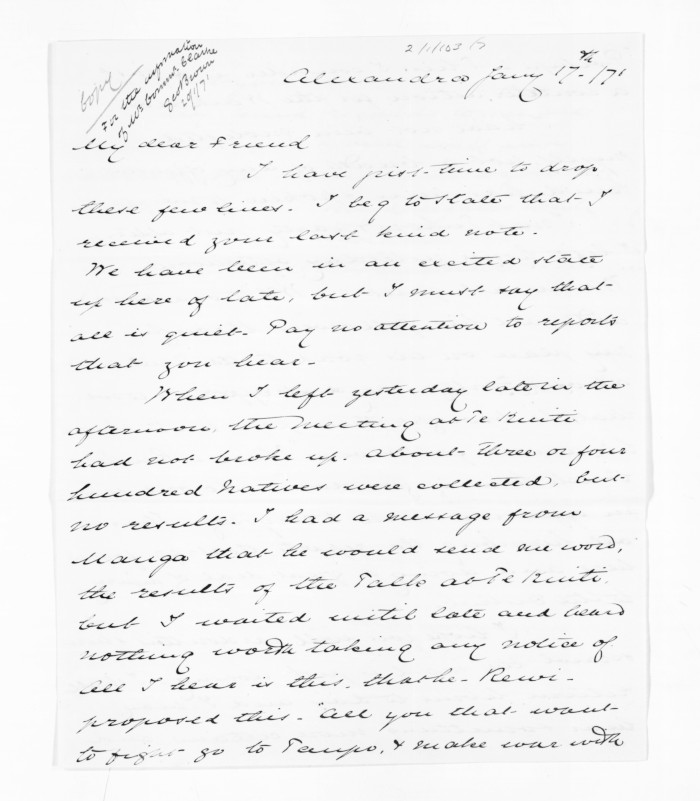 2/1/103
Copy
For the information
of Mr Commr Clarke
Geo Brown
20/1/71
Alexandra Jany 17th /71
My dear Friend
I have just time to drop
these few lines. I beg to state that I
received your last kind note.
We have been in an excited state
up here of late, but I must say that
all is quiet. Pay no attention to reports
that you hear.
When I left yesterday late in the
afternoon, the Meeting at Te Kuiti
had not broke up. About three or four
hundred Natives were collected, but
no results. I had a message from
Manga that he would send me word,
the results of the Talk at Te Kuiti,
but I waited until late and heard
nothing worth taking any notice of
All I hear is this. that he - Rewi -
proposed this. "All you that want
to fight go to Taupo, & make war with